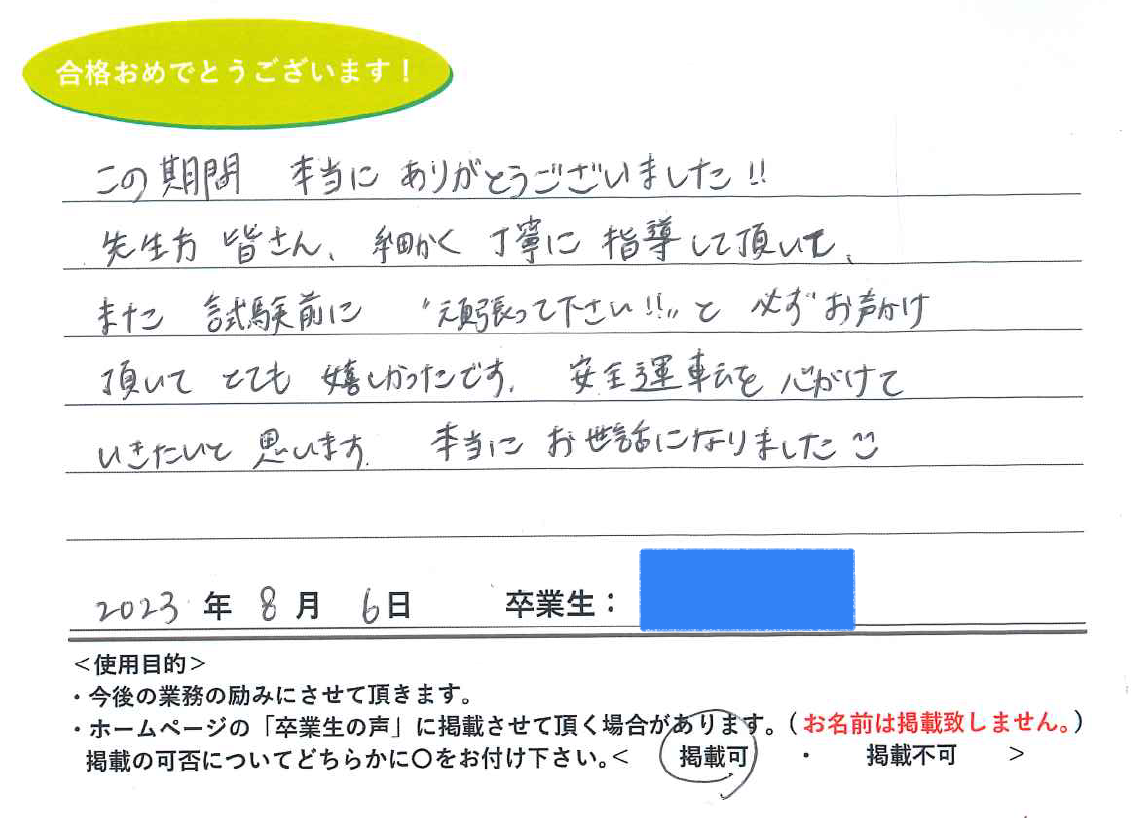 合格おめでとうございます！
この期間 本当に ありがとうございました!!
先生方 皆さん、細かく 丁寧に 指導して頂いて、
また 試験前に "頑張って下さい!!"と 必ずお声かけ
頂いて とても 嬉しかったです。 安全運転を 心がけて
いきたいと 思います。 本当に お世話になりました
2023 年 8 月 6 日 卒業生：
＜使用目的＞
・今後の業務の励みにさせて頂きます。
・ホームページの「卒業生の声」に掲載させて頂く場合があります。（お名前は掲載致しません。）
掲載の可否についてどちらかに〇をお付け下さい。＜ 掲載可 ・ 掲載不可 ＞